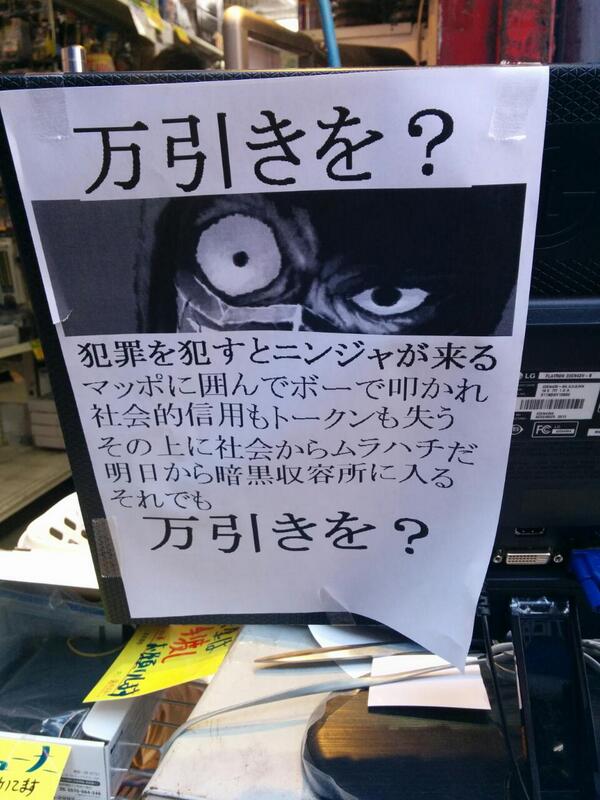 万引きを？
犯罪を犯すとニンジャが来る
マッポに囲んでボーで叩かれ
社会的信用もトークンも失う
その上に社会からムラハチだ
明日から暗黒収容所に入る
それでも
万引きを？
LG
FC